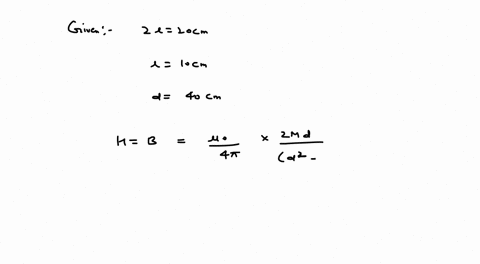 Given:- 2l = 20cm
l = 10cm
d = 40 cm
H = B = μ₀/4π × 2Md/(d² -